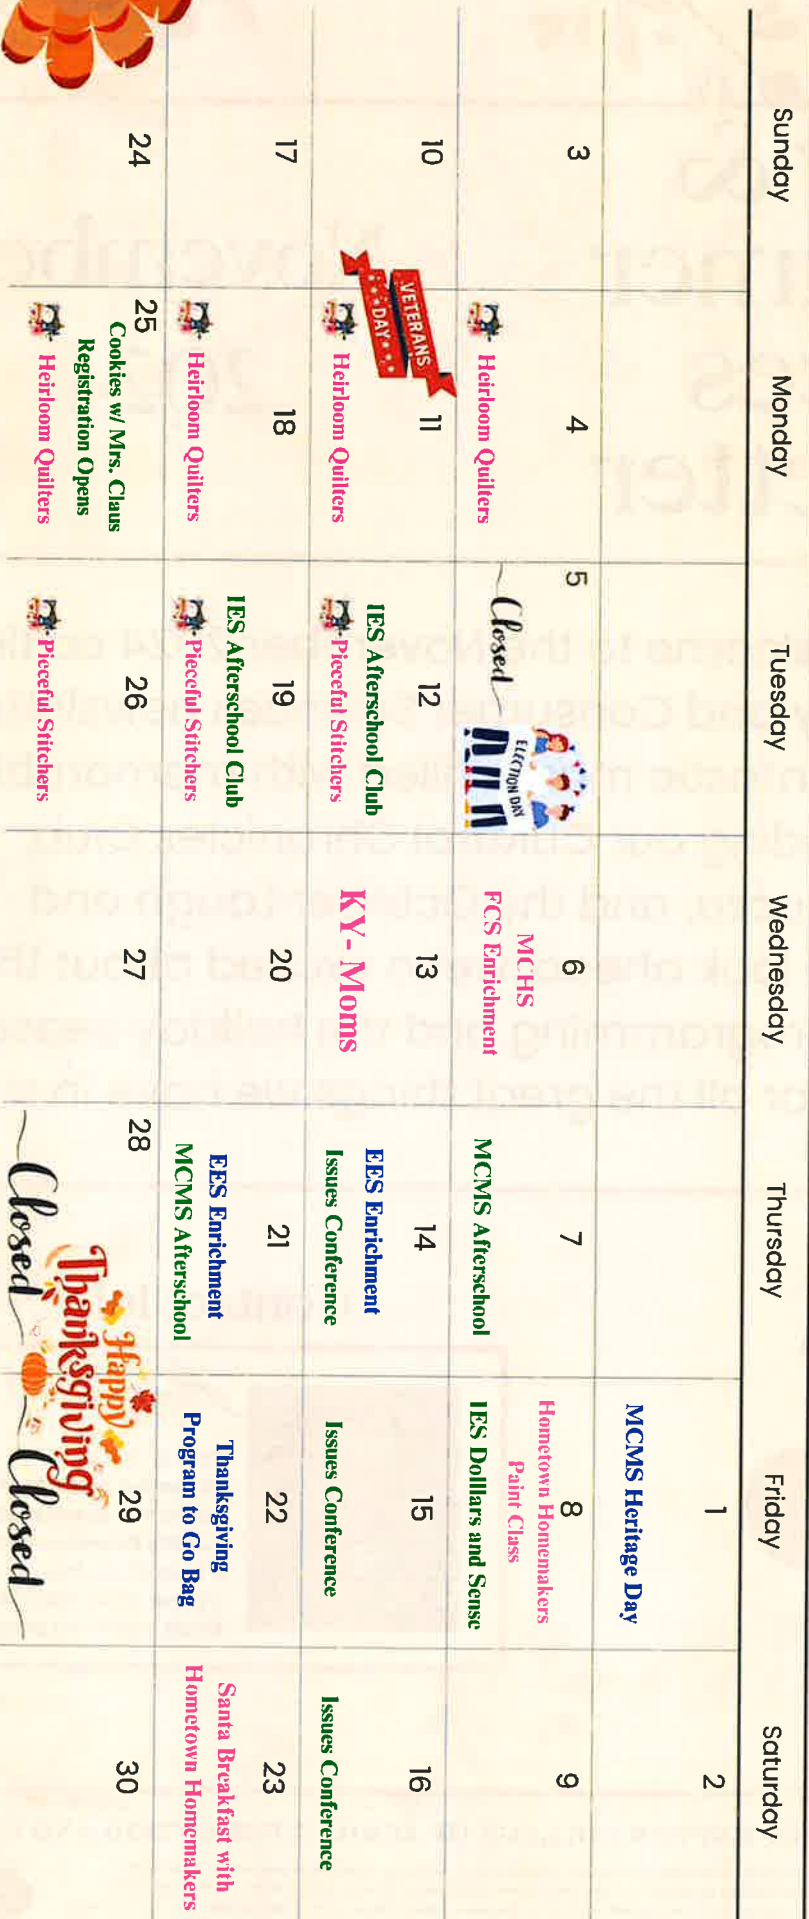 Sunday
Monday
Tuesday
Wednesday
Thursday
Friday
Saturday
1
MCMS Heritage Day
2
3
4
Heirloom Quilters
5
Closed
ELECTION DAY
6
MCHS
FCS Enrichment
7
MCMS Afterschool
Hometown Homemakers
8
Paint Class
IES Dolllars and Sense
9
10
VETERANS
DAY
11
Heirloom Quilters
12
IES Afterschool Club
Pieceful Stitchers
13
KY- Moms
14
EES Enrichment
Issues Conference
15
Issues Conference
16
Issues Conference
17
18
Heirloom Quilters
19
IES Afterschool Club
Pieceful Stitchers
20
21
EES Enrichment
MCMS Afterschool
22
Thanksgiving
Program to Go Bag
23
Santa Breakfast with
Hometown Homemakers
24
25
Cookies w/ Mrs. Claus
Registration Opens
Heirloom Quilters
26
Pieceful Stitchers
27
28
Happy
Thanksgiving
Closed
29
Closed
30